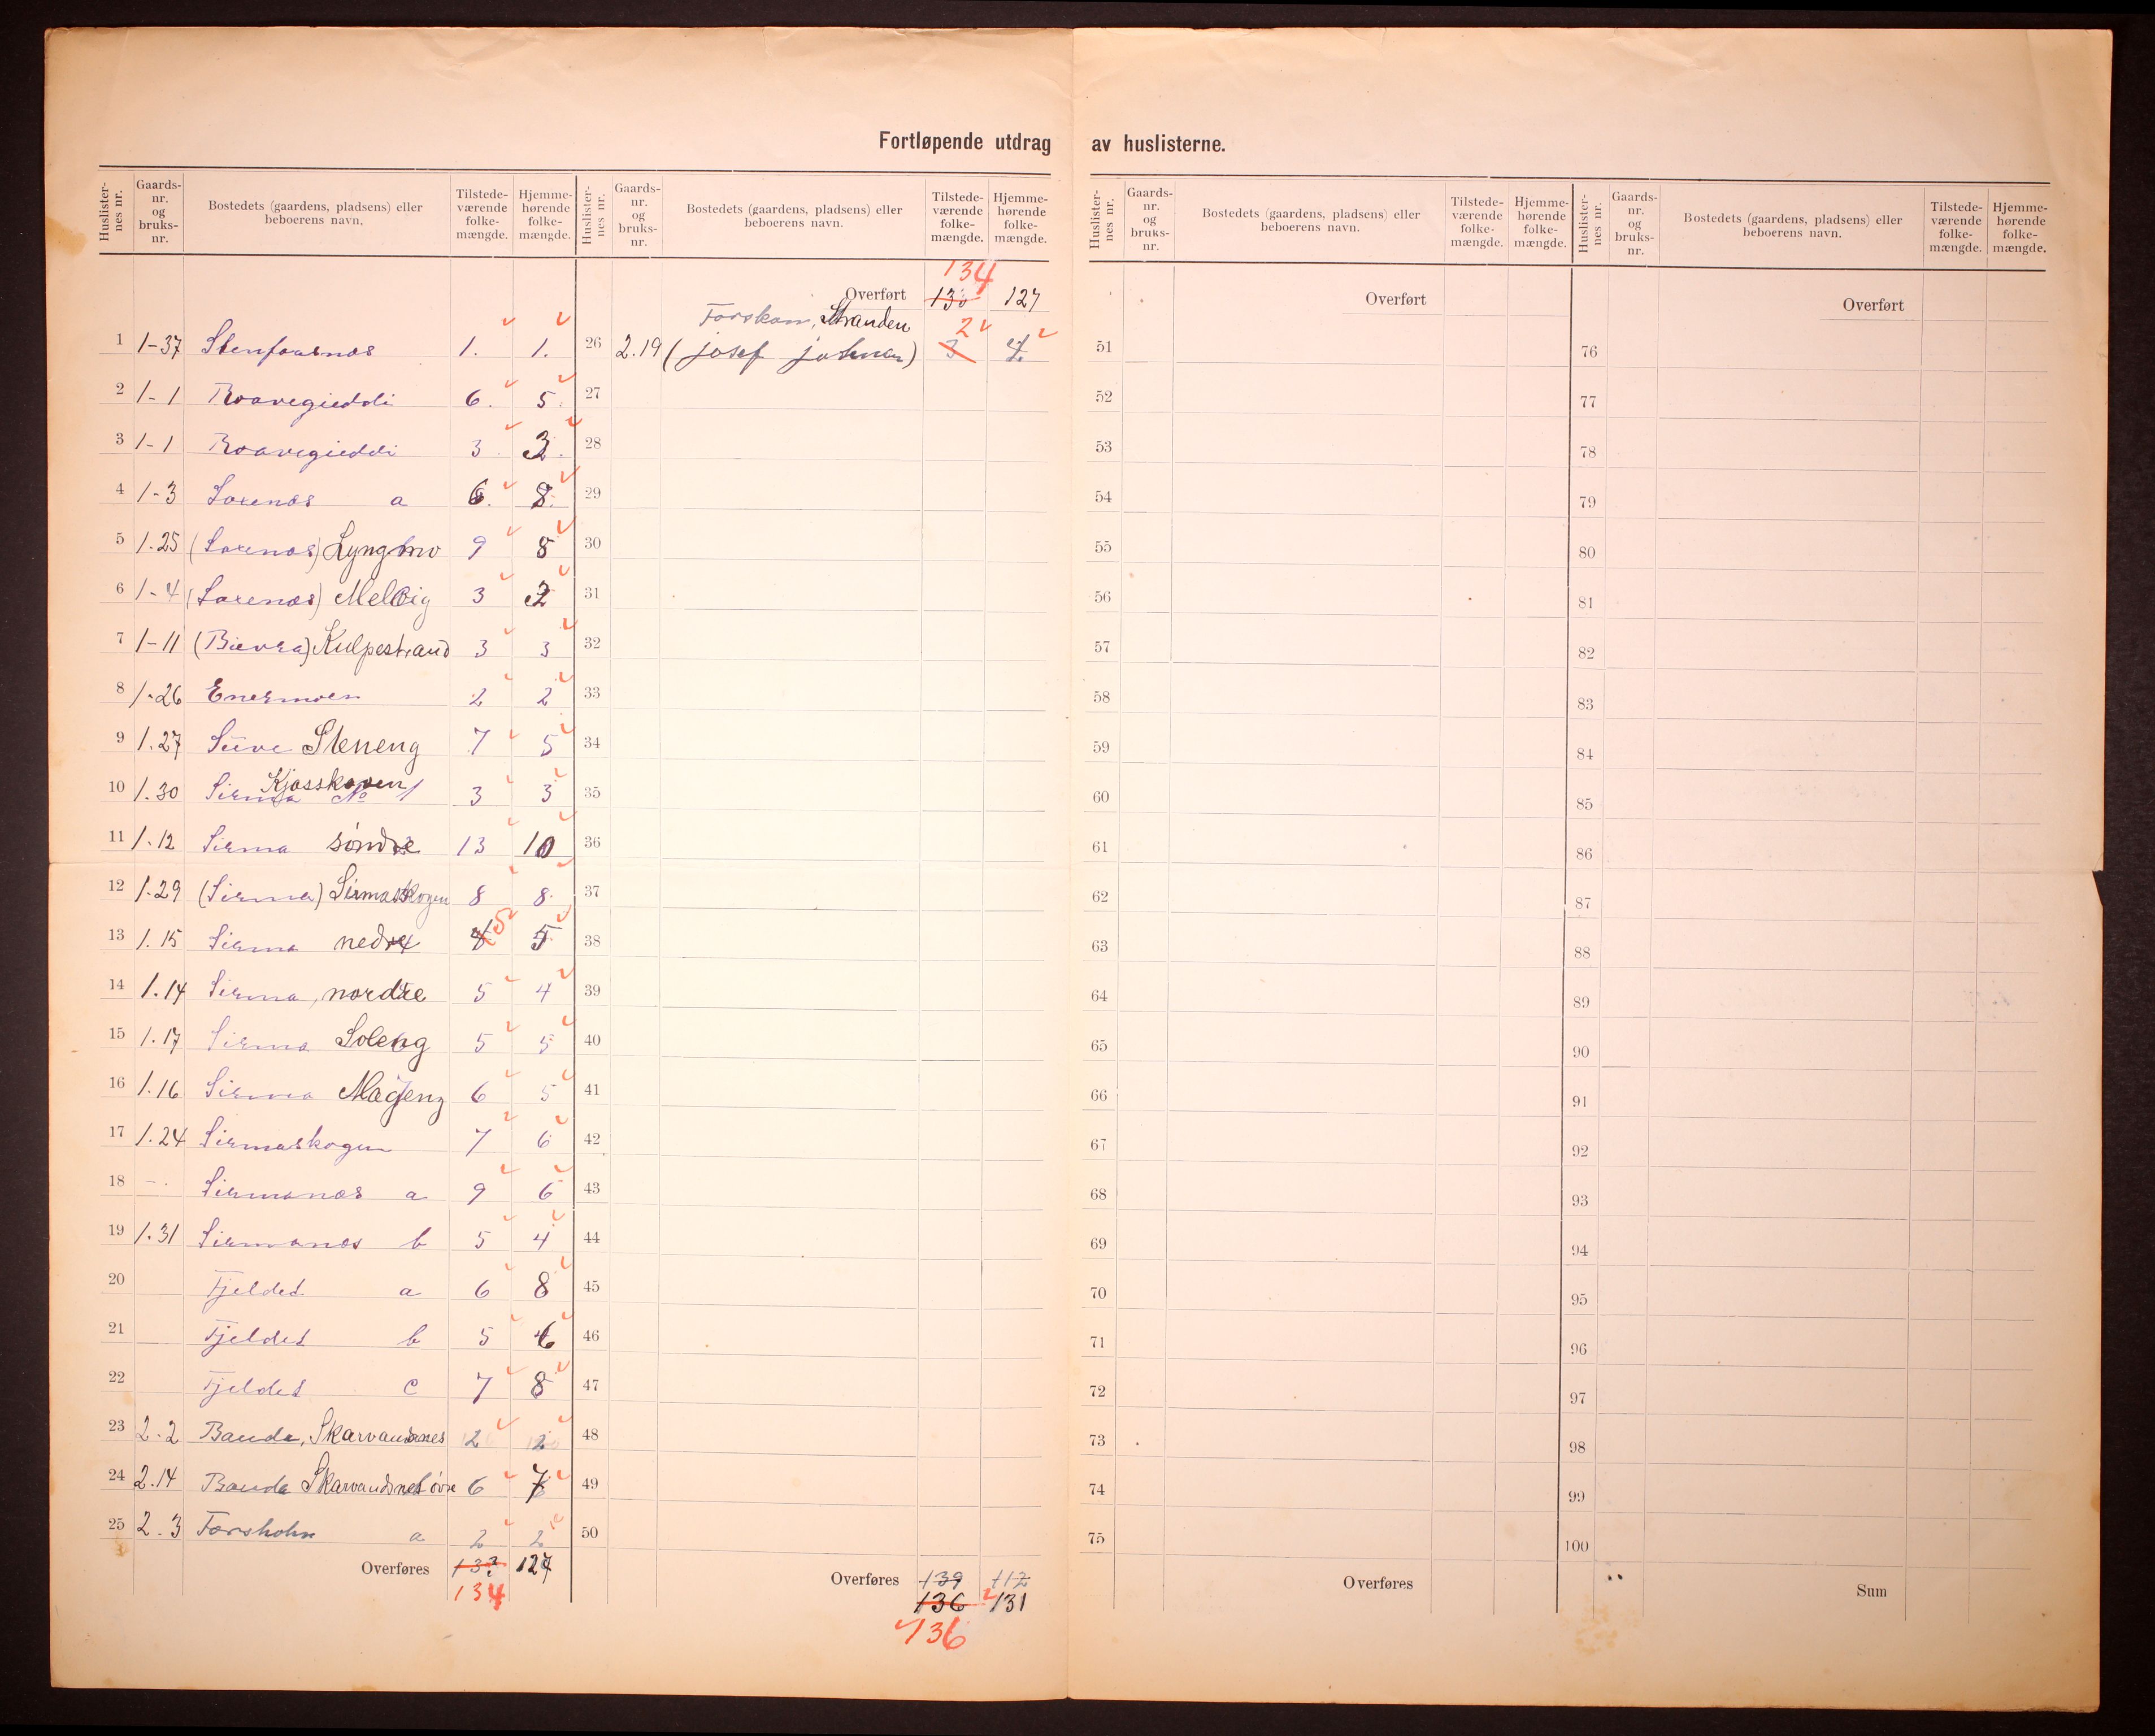 Fortløpende utdrag av huslisterne.
Huslister-nes nr. Gaards-nr. og bruks-nr. Bostedets (gaardens, pladsens) eller beboerens navn. Tilstede-værende folke-mængde. Hjemme-hørende folke-mængde.
1 1-37 Stenfossnæs 1. 1.
2 1-1 Roavegieddi 6. 5.
3 1-1 Roavegieddi 3. 3.
4 1-3 Laxenæs a 6. 8.
5 1.25 (Laxenæs) Lyngmo 9 8
6 1-4 (Laxenæs) Melbig 3 2
7 1-11 (Bievra) Kulpestrand 3 3
8 1.26 Enermoen 2 2
9 1.27 Suve Steneng 7 5
10 1.30 Sirma Kjosskoven 3 3
11 1.12 Sirma søndre 13 10
12 1.29 (Sirma) Sirmaskogen 8 8.
13 1.15 Sirma nedre 5 5
14 1.14 Sirma, nordre 5 4
15 1.17 Sirma Soleng 5 5
16 1.16 Sirma Mageng 6 5
17 1.24 Sirmaskogen 7 6
18 - . Sirmanæs a 9 6
19 1.31 Sirmanæs b 5 4
20 Fjeldet a 6 8
21 Fjeldet b 5 6
22 Fjeldet c 7 8
23 2.2 Banda, Skarvandsnes 2 2
24 2.14 Banda Skarvandsnes øvre 6 7
25 2.3 Forsholm a 2 2
Overføres 132 127
134
Huslister-nes nr. Gaards-nr. og bruks-nr. Bostedets (gaardens, pladsens) eller beboerens navn. Tilstede-værende folke-mængde. Hjemme-hørende folke-mængde.
134
Overført 130 127
Forsholm, Stranden 2
26 2.19 (josef johnsen) 3 4.
27
28
29
30
31
32
33
34
35
36
37
38
39
40
41
42
43
44
45
46
47
48
49
50
Overføres 139 112
136 131
136
Huslister-nes nr. Gaards-nr. og bruks-nr. Bostedets (gaardens, pladsens) eller beboerens navn. Tilstede-værende folke-mængde. Hjemme-hørende folke-mængde.
Overført
51
52
53
54
55
56
57
58
59
60
61
62
63
64
65
66
67
68
69
70
71
72
73
74
75
Overføres
Huslister-nes nr. Gaards-nr. og bruks-nr. Bostedets (gaardens, pladsens) eller beboerens navn. Tilstede-værende folke-mængde. Hjemme-hørende folke-mængde.
Overført
76
77
78
79
80
81
82
83
84
85
86
87
88
89
90
91
92
93
94
95
96
97
98
99
100
Sum